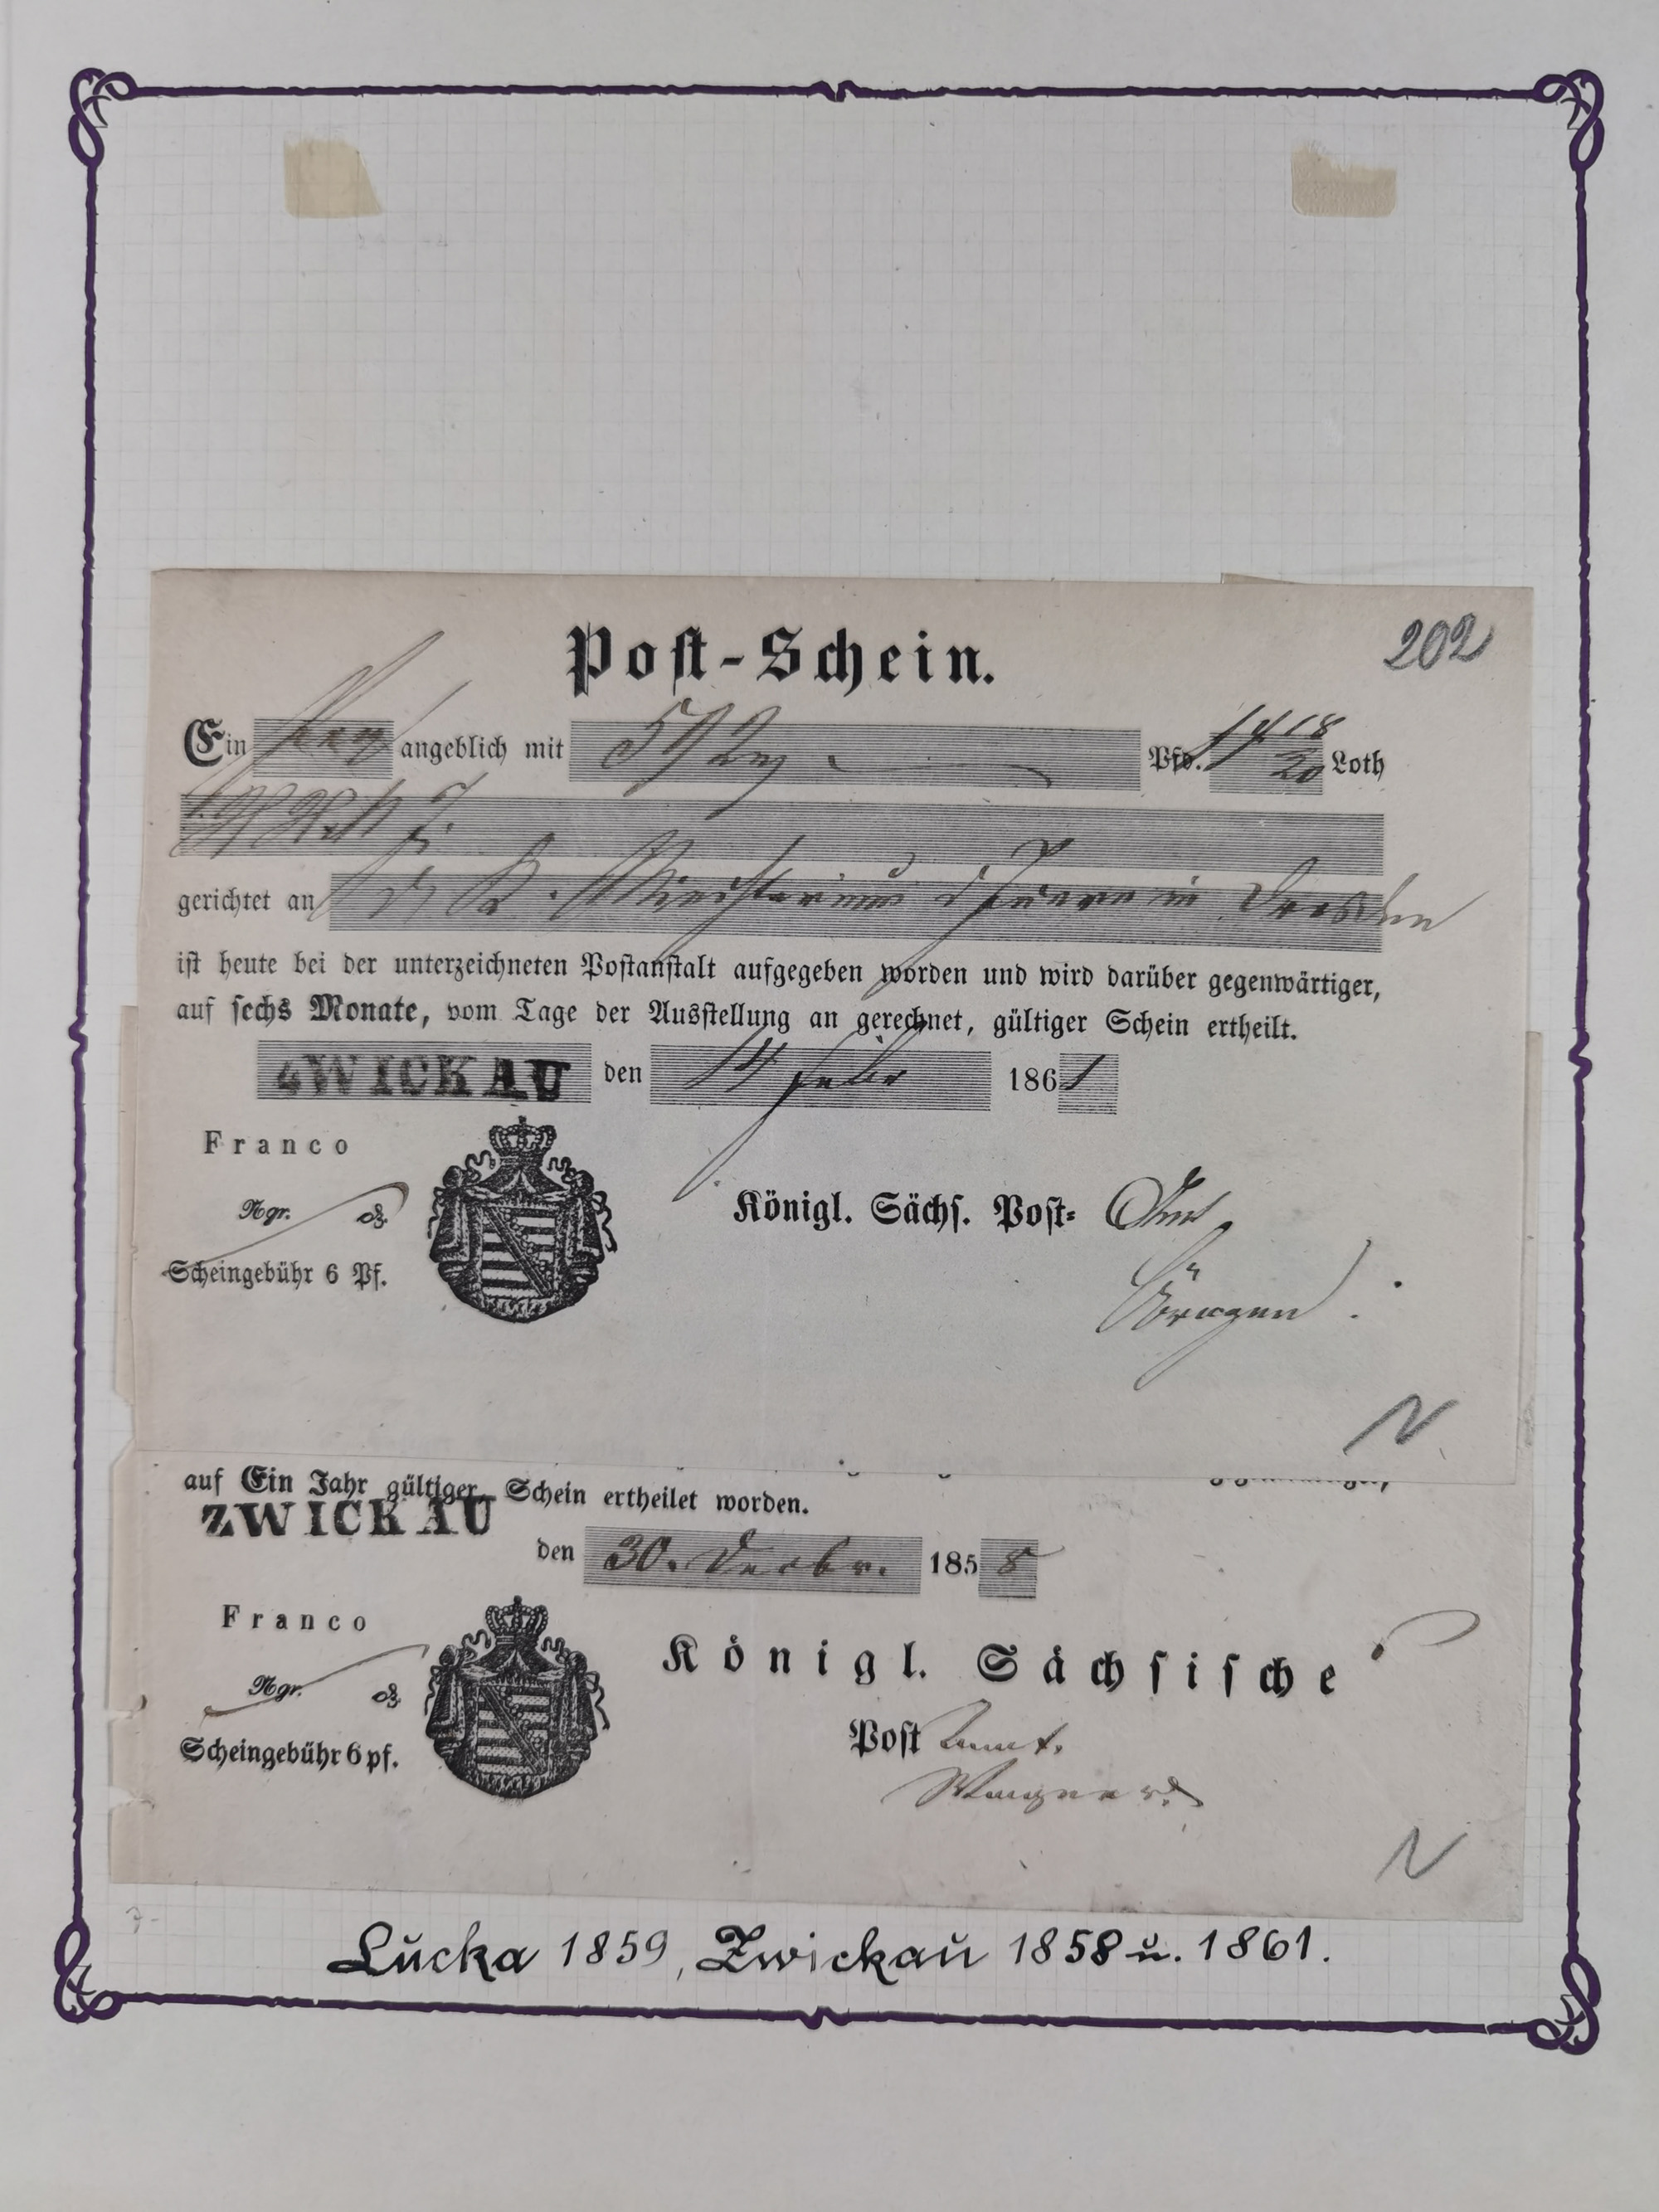 Post-Schein.
202
Ein angeblich mit Pfd. 18 20 Loth
gerichtet an Ministerium Dresden
ist heute bei der unterzeichneten Postanstalt aufgegeben worden und wird darüber gegenwärtiger,
auf sechs Monate, vom Tage der Ausstellung an gerechnet, gültiger Schein ertheilt.
ZWICKAU den 14 Febr 1861
Franco
Ngr. ₰
Scheingebühr 6 Pf.
Königl. Sächs. Post-
N
auf Ein Jahr gültiger Schein ertheilet worden.
ZWICKAU
den 30. Decbr. 1858
Franco
Ngr. ₰
Scheingebühr 6 pf.
Königl. Sächsische
Post Amt.
Wagner
N
Lucka 1859, Zwickau 1858 u. 1861.